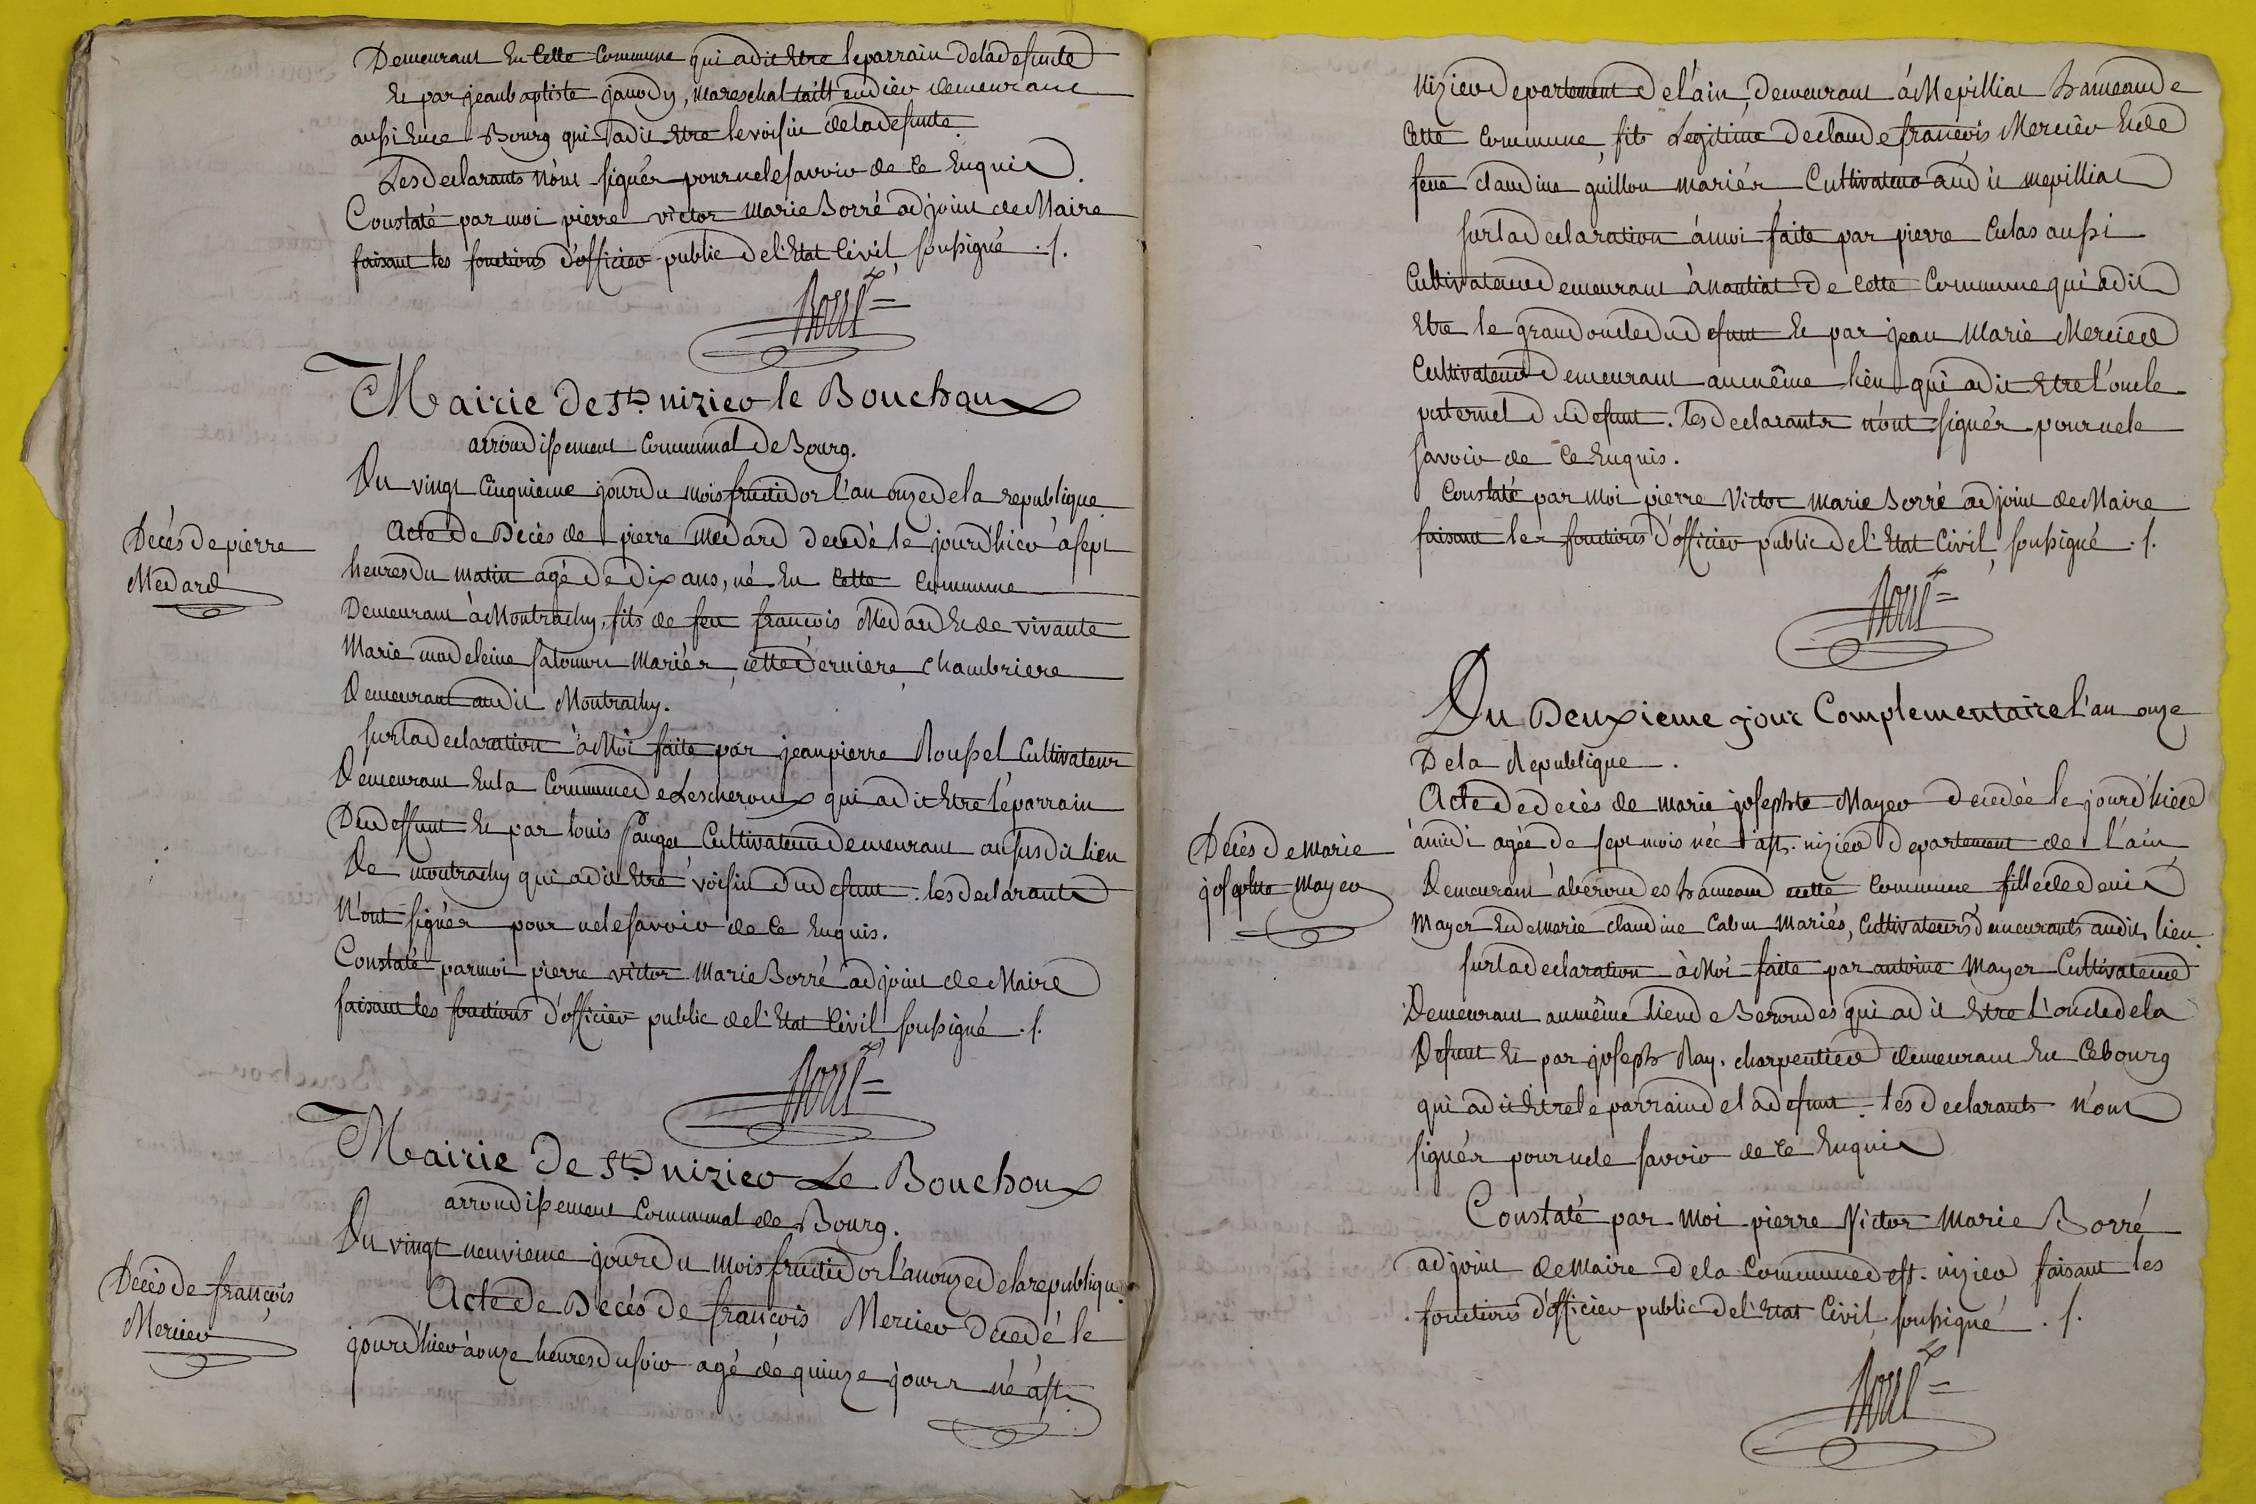 Demeurant En Cette Commune qui a dit Etre le parrain de la defunte
Et par jean baptiste janody, mareschal taillendier demeurant
aussi En ce Bourg qui a dit Etre le voisin de la defunte.
Les declarants n'ont signés pour ne le savoir de ce Enquis.
Constaté par moi pierre victor Marie Borré adjoint de Maire
faisant les fonctions d'officier public de l'Etat Civil soussigné ./.
Borré
Mairie de St. nizier le Bouchoux
arrondissement Communal de Bourg.
Du vingt Cinquieme jour du mois fructidor l'an onze de la republique
Decès de pierre
Medard
Acte de Decès de pierre Medard decedé le jourd'hier à sept
heures du matin agé de dix ans, né En Cette Commune
Demeurant à Montrachy, fils de feu françois Medard Et de vivante
Marie madeleine salomon Mariés, cette derniere, chambriere
Demeurant au dit Montrachy.
sur la declaration à Moi faite par jean pierre Roussel Cultivateur
Demeurant En la Commune de Lescheroux qui a dit Etre le parrain
Du deffunt Et par louis Cultivateur demeurant au susdit lieu
De montrachy qui a dit Etre voisin du defunt. les declarants
N'ont signés pour ne le savoir de ce Enquis.
Constaté par moi pierre victor Marie Borré adjoint de Maire
faisant les fonctions d'officier public de l'Etat Civil soussigné ./.
Borré
Mairie de St. nizier Le Bouchoux
arrondissement Communal de Bourg.
Du vingt neuvieme jour du mois fructidor l'an onze de la republique
Decès de françois
Mercier
Acte de Decès de françois Mercier decedé le
jourd'hier à onze heures du soir agé de quinze jours né à st.
Nizier departement de l'ain, demeurant à Mepilliat hameau de
Cette Commune, fils Legitime de claude françois Mercier Et de
feue claudine guillon mariés Cultivateur au dit mepilliat
sur la declaration à moi faite par pierre Culas aussi
Cultivateur demeurant à nantiat de Cette Commune qui a dit
Etre le grand oncle du defunt Et par jean Marie Mercier
Cultivateur demeurant au même lieu qui a dit Etre l'oncle
paternel du defunt. les declarants n'ont signés pour ne le
savoir de ce Enquis.
Constaté par moi pierre Victor Marie Borré adjoint de Maire
faisant les fonctions d'officier public de l'Etat Civil soussigné ./.
Borré
Du Deuxieme jour Complementaire l'an onze
De la Republique.
Decès de Marie
josephte Mayer
Acte de decès de marie josephte Mayer decedée le jourd'hier
à midi agée de sept mois née à st. nizier departement de l'ain
Demeurant à beroudes hameau cette Commune fille de denis
Mayer Et de Marie claudine Cabut Mariés, Cultivateurs demeurants au dit lieu.
sur la declaration à Moi faite par antoine Mayer Cultivateur
Demeurant au même lieu de Beroudes qui a dit Etre l'oncle de la
Defunt Et par joseph Ray, charpentier demeurant En Ce bourg
qui a dit Etre le parrain de la defunt. les declarants N'ont
signés pour ne le savoir de ce Enquis
Constaté par Moi pierre Victor Marie Borré
adjoint de Maire de la Commune de st. nizier faisant les
fonctions d'officier public de l'Etat Civil soussigné ./.
Borré